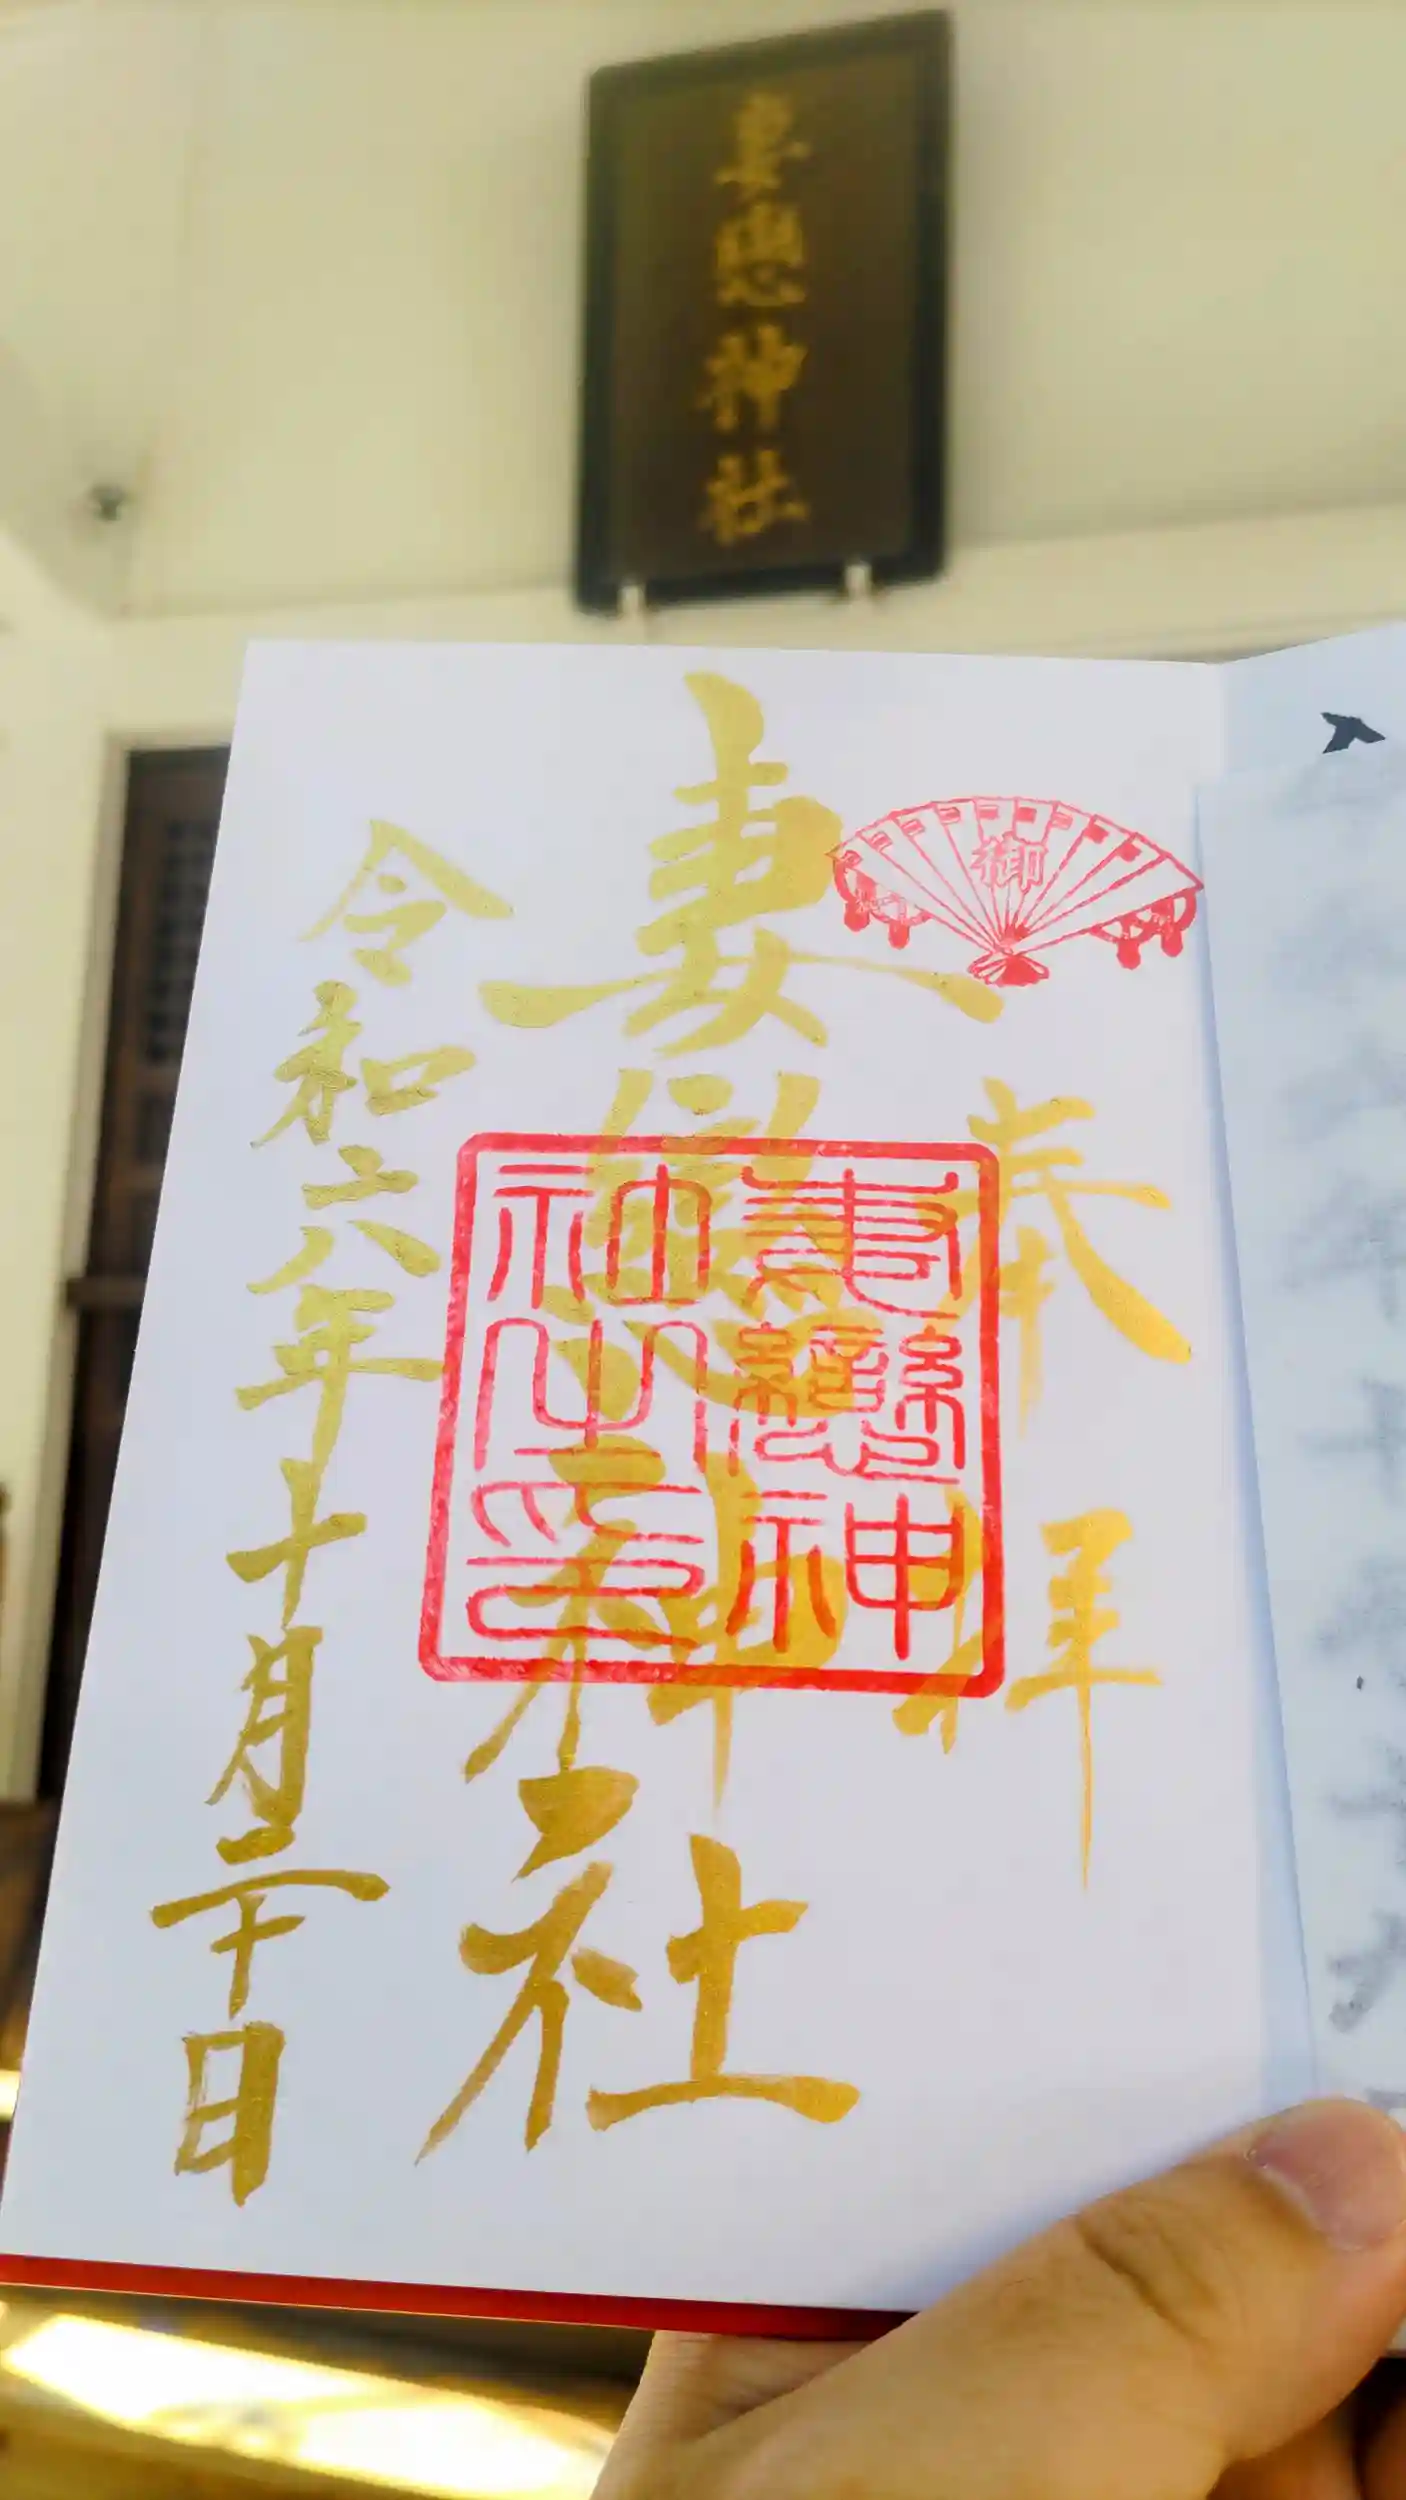 妻戀神社
御
奉拝
妻戀神社
妻戀神
社之印
令和六年十月二十日